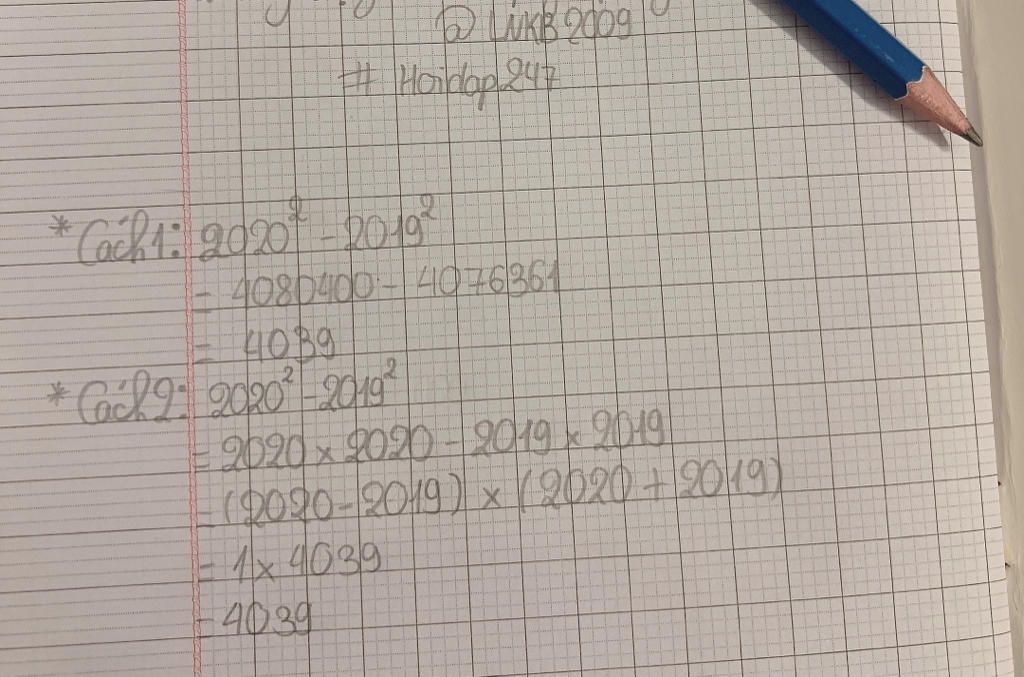 @ LWKB2009
# Hoidap247
* Cách1: 2020² - 2019²
= 4080400 - 4076361
= 4039
* Cách2: 2020² - 2019²
= 2020 × 2020 - 2019 × 2019
= (2020 - 2019) × (2020 + 2019)
= 1 × 4039
= 4039